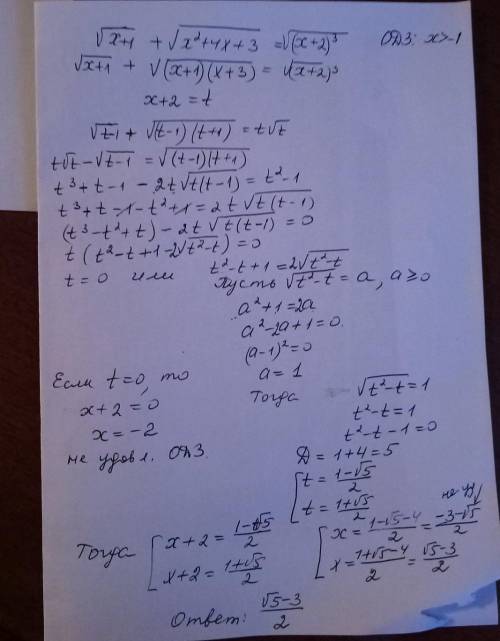 √(x+1) + √(x²+4x+3) = √((x+2)³) ОДЗ: x>-1
√(x+1) + √((x+1)(x+3)) = √((x+2)³)
x+2 = t
√(t-1) + √((t-1)(t+1)) = t√t
t√t - √(t-1) = √((t-1)(t+1))
t³ + t - 1 - 2t√(t(t-1)) = t² - 1
t³ + t - 1 - t² + 1 = 2t√(t(t-1))
(t³ - t² + t) - 2t√(t(t-1)) = 0
t(t² - t + 1 - 2√(t²-t)) = 0
t = 0 или t² - t + 1 = 2√(t²-t)
Пусть √(t²-t) = a, a ≥ 0
a² + 1 = 2a
a² - 2a + 1 = 0
(a-1)² = 0
a = 1
Если t=0, то
x+2 = 0
x = -2
не удовл. ОДЗ.
Тогда √(t²-t) = 1
t² - t = 1
t² - t - 1 = 0
D = 1+4 = 5
[ t = (1-√5)/2
t = (1+√5)/2
Тогда [ x+2 = (1-√5)/2
x+2 = (1+√5)/2
[ x = (1-√5-4)/2 = (-3-√5)/2
x = (1+√5-4)/2 = (√5-3)/2
Ответ: (√5-3)/2